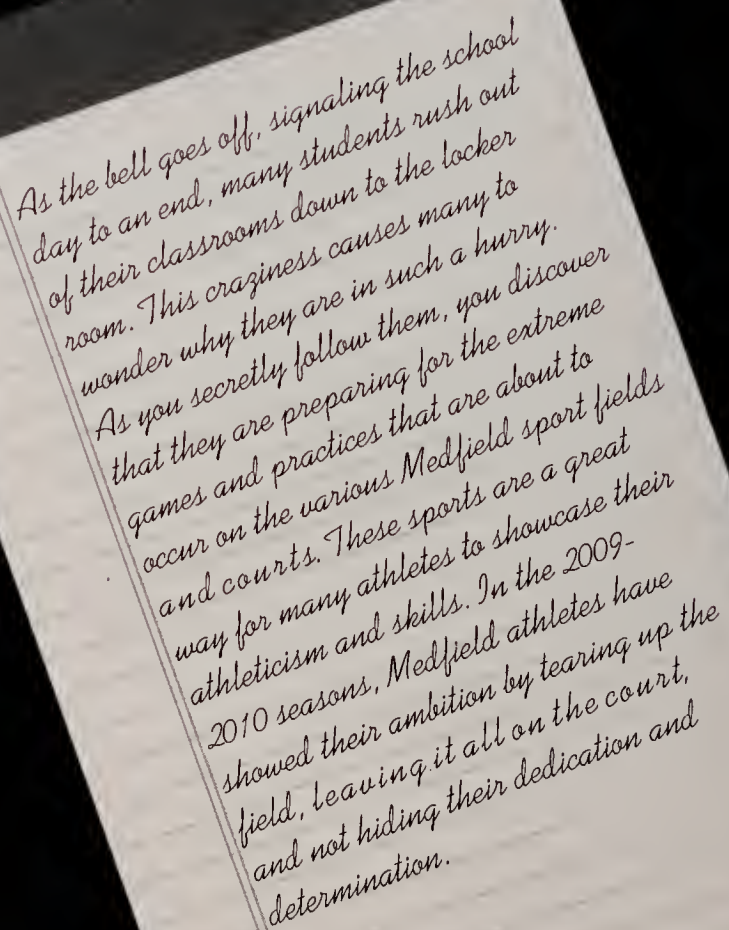 As the bell goes off, signaling the school
day to an end, many students rush out
of their classrooms down to the locker
room. This craziness causes many to
wonder why they are in such a hurry.
As you secretly follow them, you discover
that they are preparing for the extreme
games and practices that are about to
occur on the various Medfield sport fields
and courts. These sports are a great
way for many athletes to showcase their
athleticism and skills. In the 2009-
2010 seasons, Medfield athletes have
showed their ambition by tearing up the
field, leaving it all on the court,
and not hiding their dedication and
determination.